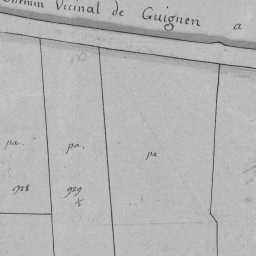 Chemin Vicinal de Guignen a
pa. pa. pa
928 929